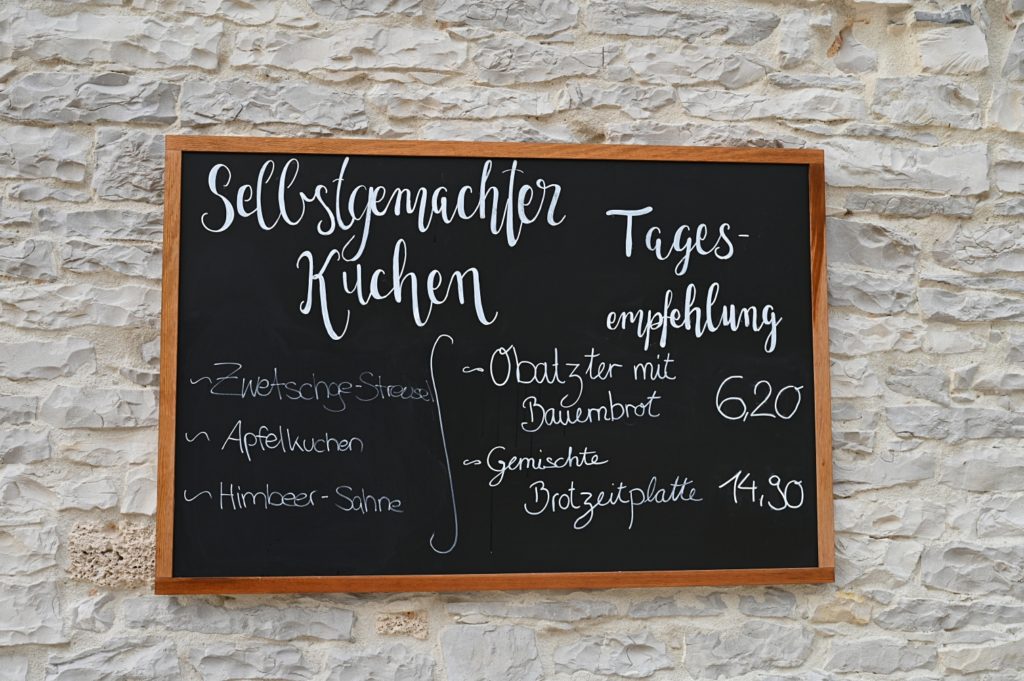 Selbstgemachter
Kuchen
~ Zwetschge-Streusel
~ Apfelkuchen
~ Himbeer-Sahne
Tages-
empfehlung
~ Obatzter mit
Bauernbrot 6,20
~ Gemischte
Brotzeitplatte 14,90